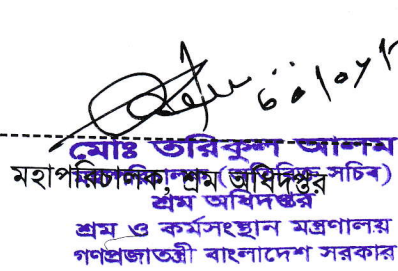 মোঃ তরিকুল আলম
মহাপরিচালক, শ্রম অধিদপ্তর
মহাপরিচালক (অতিরিক্ত সচিব)
শ্রম অধিদপ্তর
শ্রম ও কর্মসংস্থান মন্ত্রণালয়
গণপ্রজাতন্ত্রী বাংলাদেশ সরকার